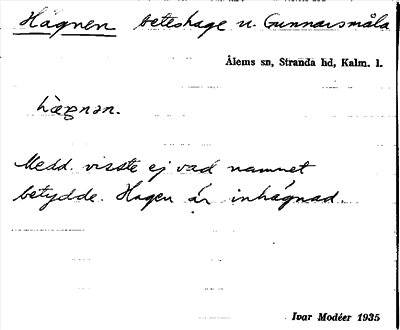 Hägnen beteshage u. Gunnarsmåla
Ålems sn, Stranda hd, Kalm. l.
Medd. visste ej vad namnet
betydde. Hagen är inhägnad.
Ivar Modéer 1935